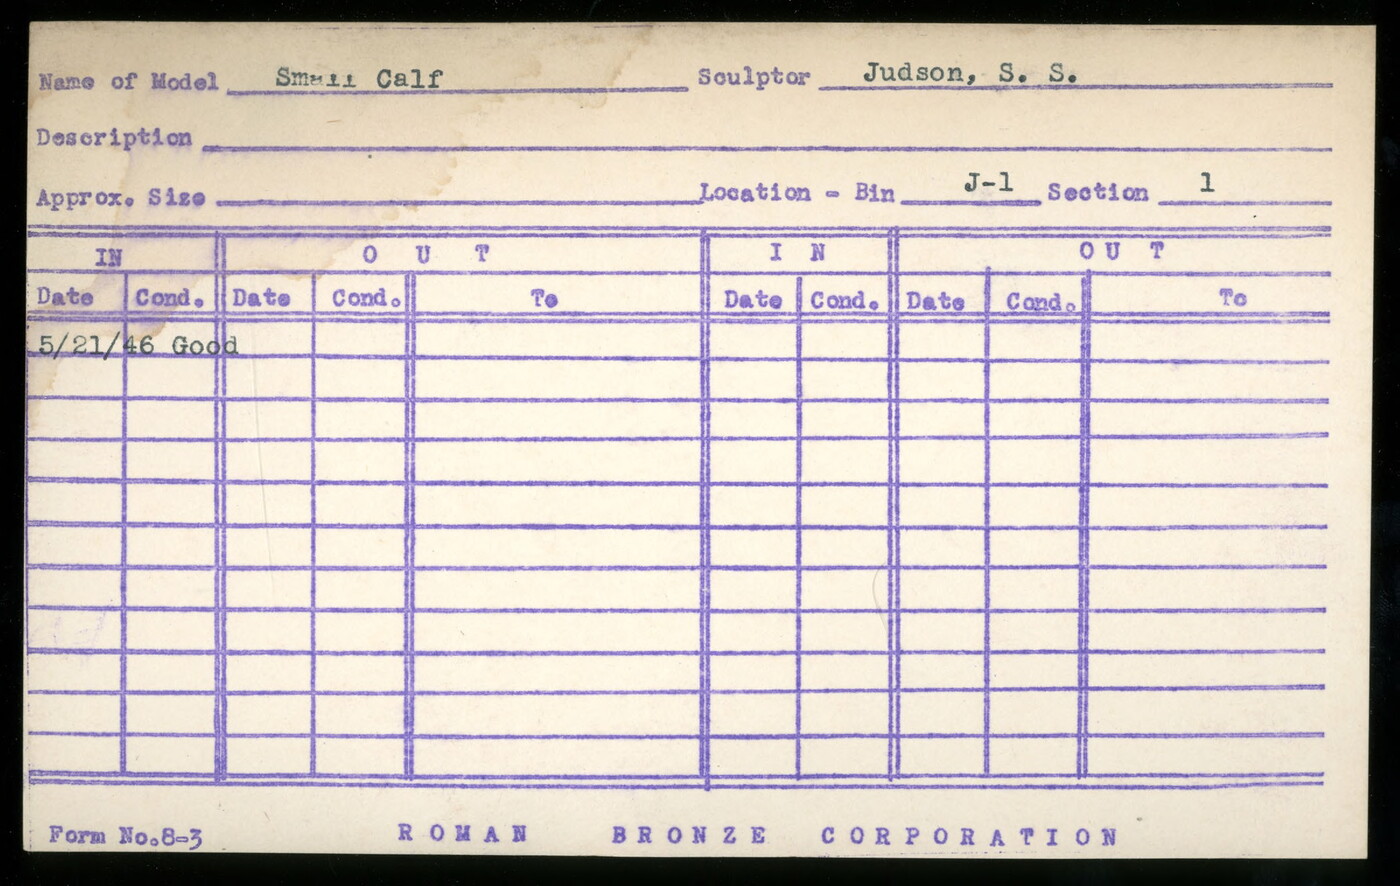 Name of Model Small Calf Sculptor Judson, S. S.
Description
Approx. Size Location - Bin J-1 Section 1
IN OUT IN OUT
Date Cond. Date Cond. To Date Cond. Date Cond. To
5/21/46 Good
Form No.8-3 ROMAN BRONZE CORPORATION